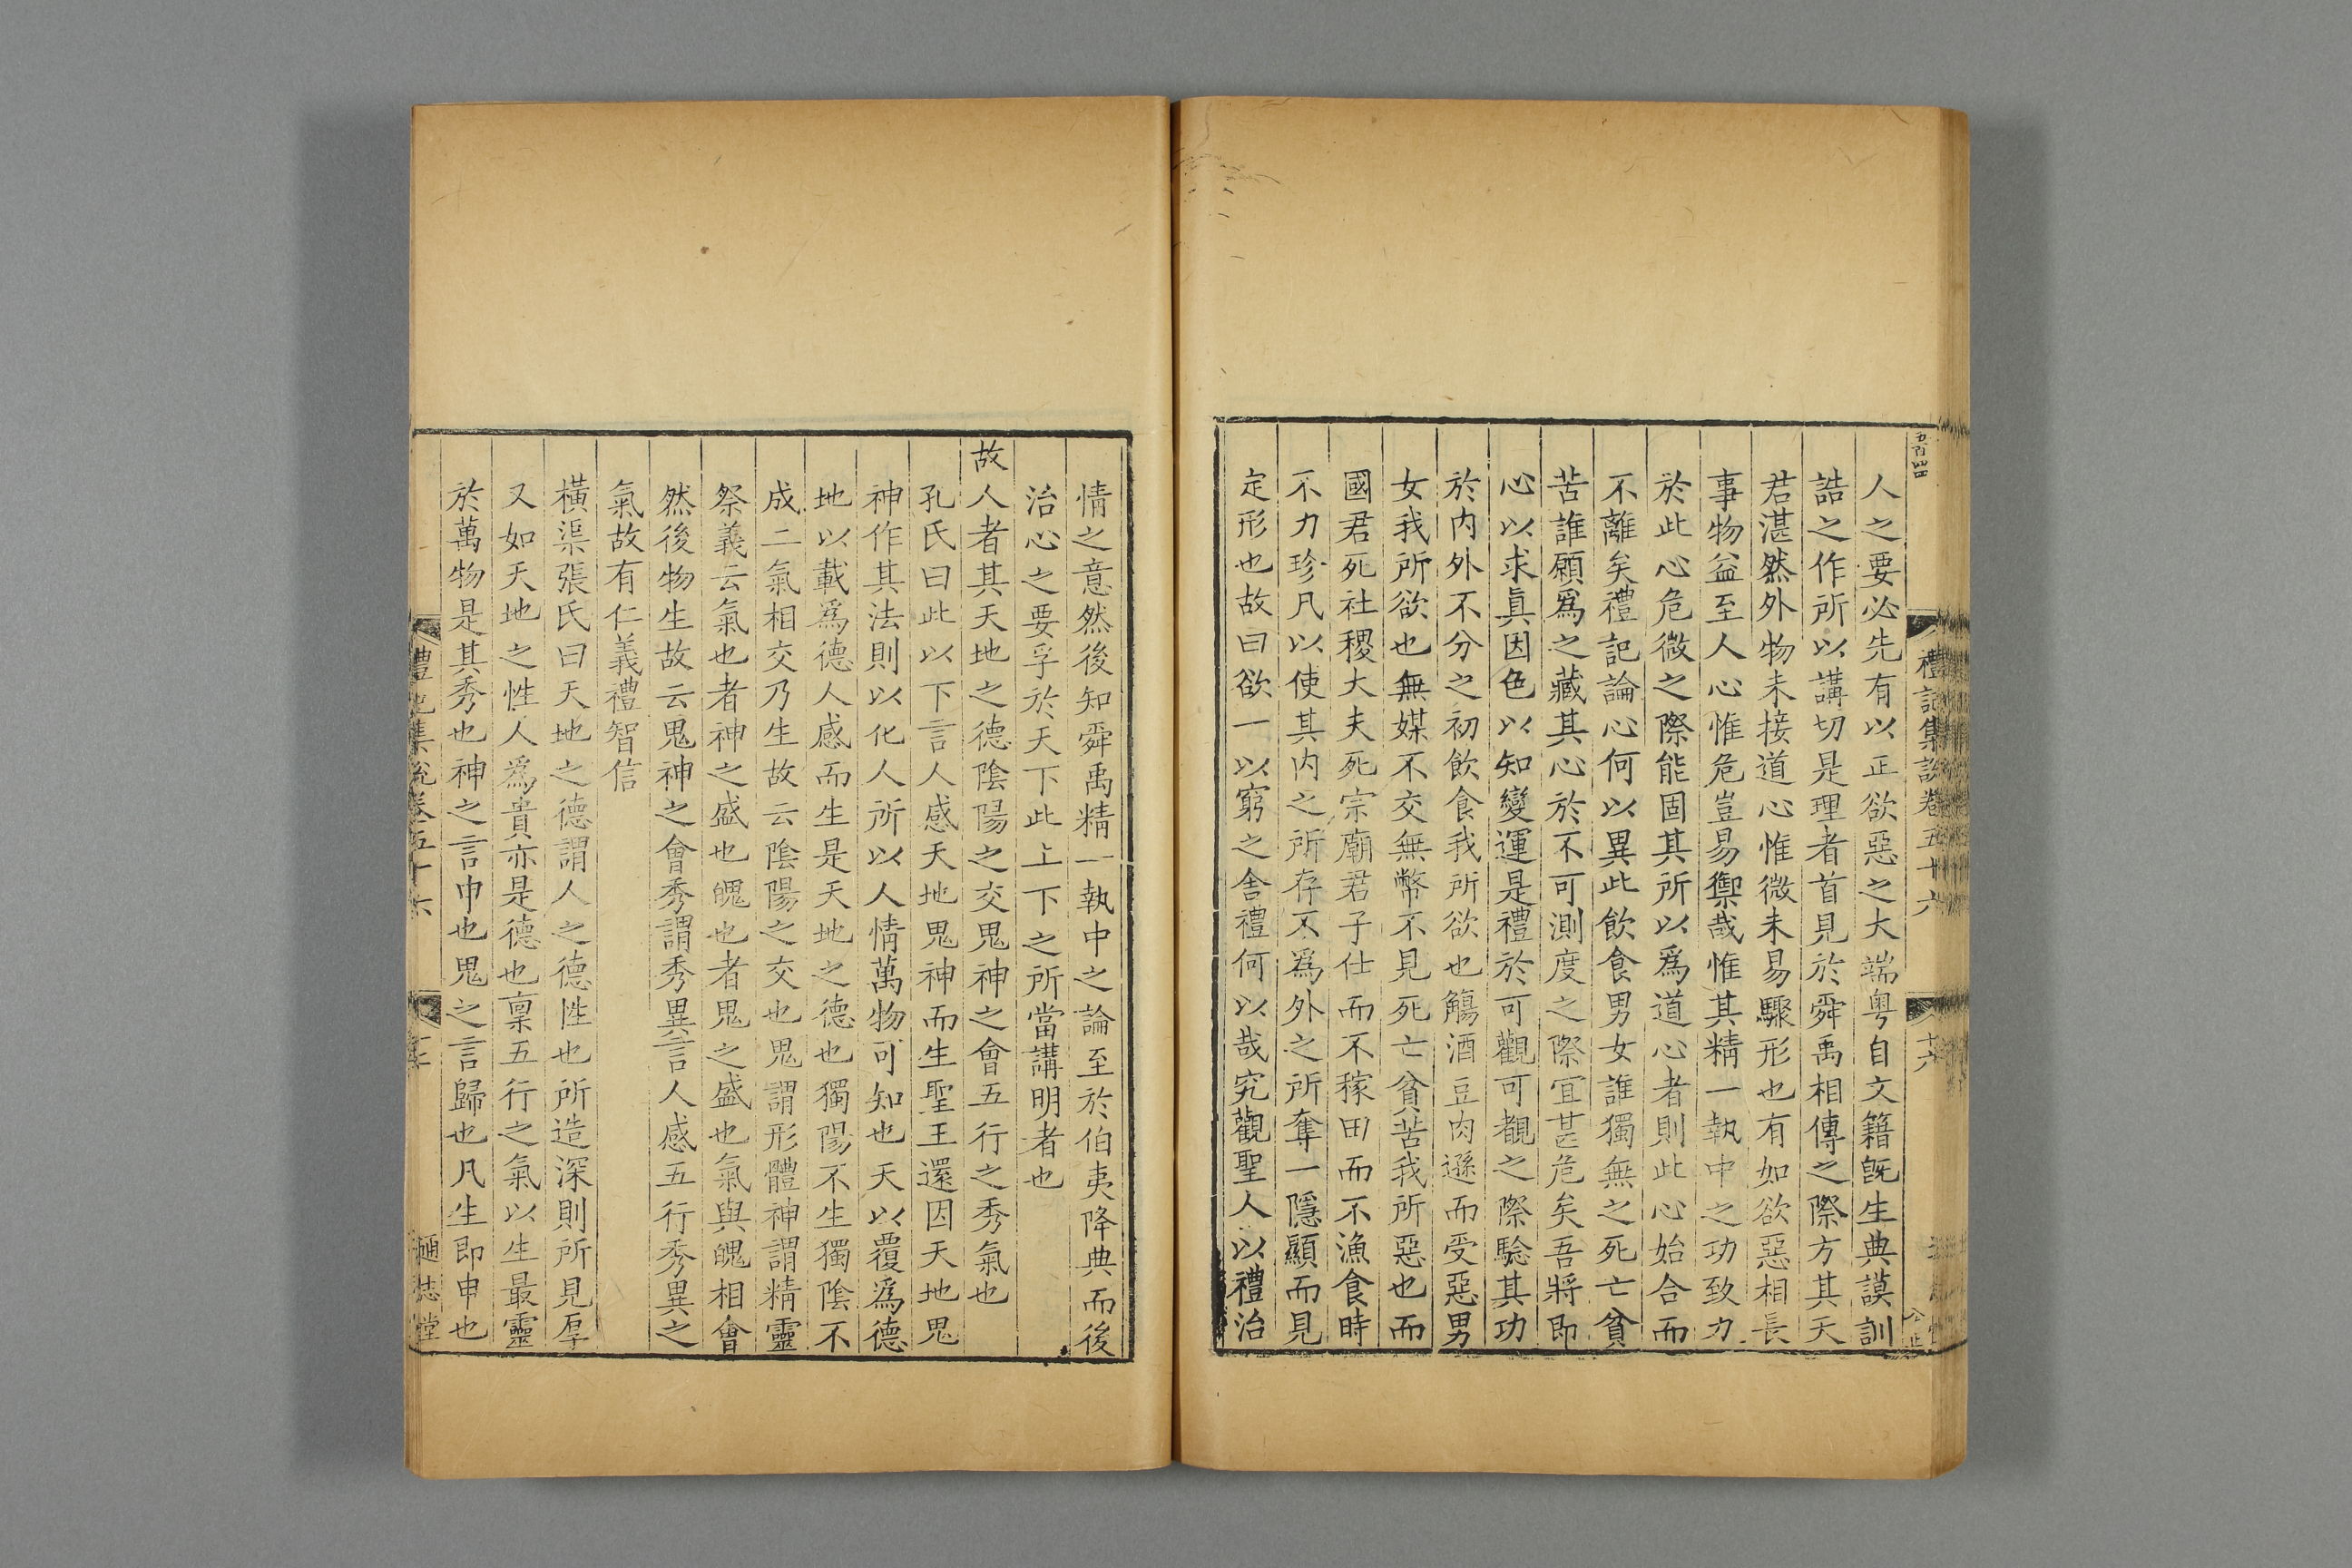 五百四四
禮記集説卷五十六
十六
人之要必先有以正欲惡之大端粤自文籍旣生典謨訓
誥之作所以講切是理者首見於舜禹相傳之際方其天
君湛然外物未接道心惟微未易驟形也有如欲惡相長
事物益至人心惟危豈易禦哉惟其精一執中之功致力
於此心危微之際能固其所以爲道心者則此心始合而
不離矣禮記論心何以異此飲食男女誰獨無之死亡貧
苦誰願爲之藏其心於不可測度之際宜甚危矣吾將即
心以求眞因色以知變運是禮於可觀可覩之際驗其功
於内外不分之初飲食我所欲也觴酒豆肉遜而受惡男
女我所欲也無媒不交無幣不見死亡貧苦我所惡也而
國君死社稷大夫死宗廟君子仕而不稼田而不漁食時
不力珍凡以使其内之所存不爲外之所奪一隱顯而見
定形也故曰欲一以窮之舍禮何以哉究觀聖人以禮治
情之意然後知舜禹精一執中之論至於伯夷降典而後
治心之要孚於天下此上下之所當講明者也
故人者其天地之德陰陽之交鬼神之會五行之秀氣也
孔氏曰此以下言人感天地鬼神而生聖王還因天地鬼
神作其法則以化人所以人情萬物可知也天以覆爲德
地以載爲德人感而生是天地之德也獨陽不生獨陰不
成二氣相交乃生故云陰陽之交也鬼謂形體神謂精靈
祭義云氣也者神之盛也魄也者鬼之盛也氣與魄相會
然後物生故云鬼神之會秀謂秀異言人感五行秀異之
氣故有仁義禮智信
橫渠張氏曰天地之德謂人之德性也所造深則所見厚
又如天地之性人爲貴亦是德也稟五行之氣以生最靈
於萬物是其秀也神之言申也鬼之言歸也凡生即申也
禮記集説卷五十六
通志堂